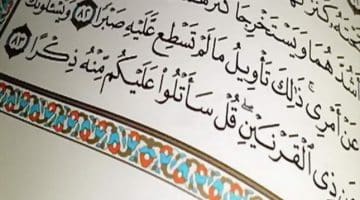 تَحْتَهُۥ كَنزٌ
أَشُدَّهُمَا وَيَسْتَخْرِجَا كَنزَهُمَا
عَنْ أَمْرِى ۚ ذَٰلِكَ تَأْوِيلُ مَا لَمْ تَسْطِع عَّلَيْهِ صَبْرًا ٨٢ وَيَسْـَٔلُونَكَ
عَن ذِى ٱلْقَرْنَيْنِ ۖ قُلْ سَأَتْلُوا۟ عَلَيْكُم مِّنْهُ ذِكْرًا ٨٣